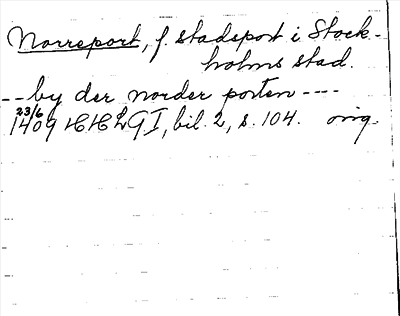 Norreport, f. stadsport i Stock-
holms stad.
-- by der norder porten ----
23/6
1409 HCHLGI, bil. 2, s. 104. orig.